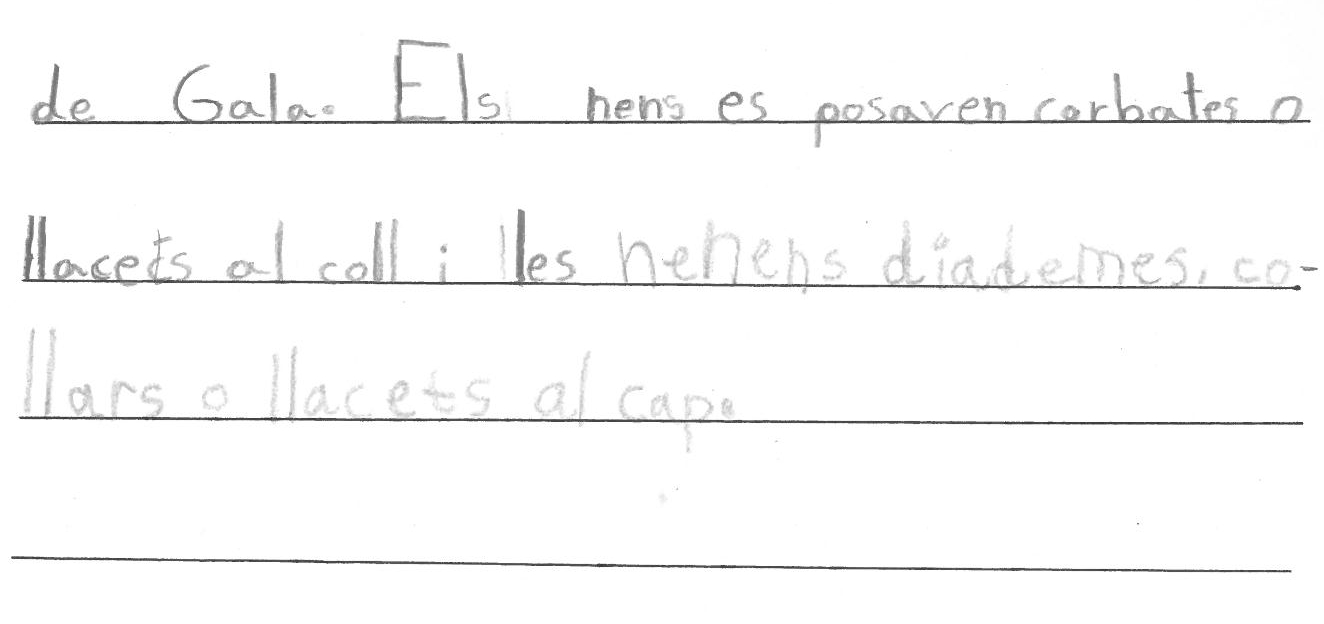 de Gala. Els nens es posaven corbates o
llacets al coll i lles nenens diademes, co-
llars o llacets al cap.